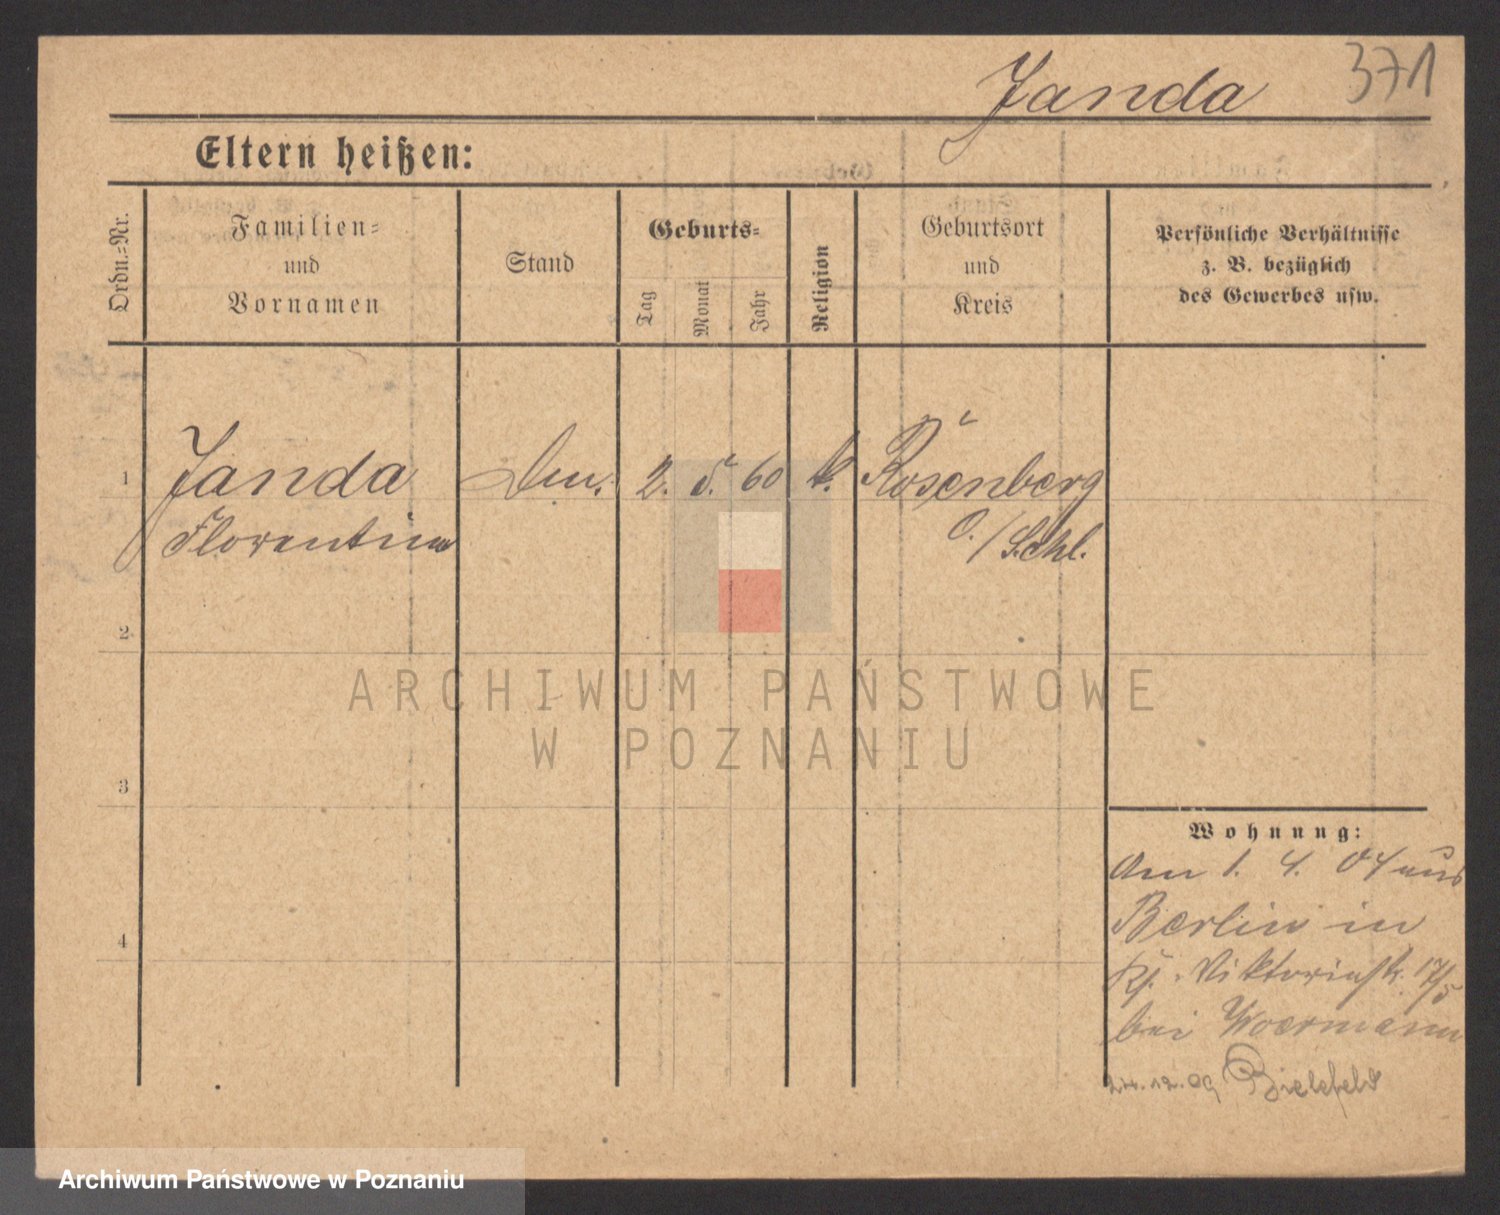 Janda 371
Eltern heißen:
Ordn.=Nr.
Familien=
und
Vornamen
Stand
Geburts=
Tag
Monat
Jahr
Religion
Geburtsort
und
Kreis
Persönliche Verhältnisse
z. B. bezüglich
des Gewerbes usw.
1 Janda 2. 5. 60 k. Rosenberg
Florentine O./Schl.
2
ARCHIWUM PAŃSTWOWE
W POZNANIU
3
Wohnung:
Am 1. 4. 04 aus
Berlin in
Viktoriastr. 17/5
4
bei Woermann
24.12.09 Bielefeld
Archiwum Państwowe w Poznaniu